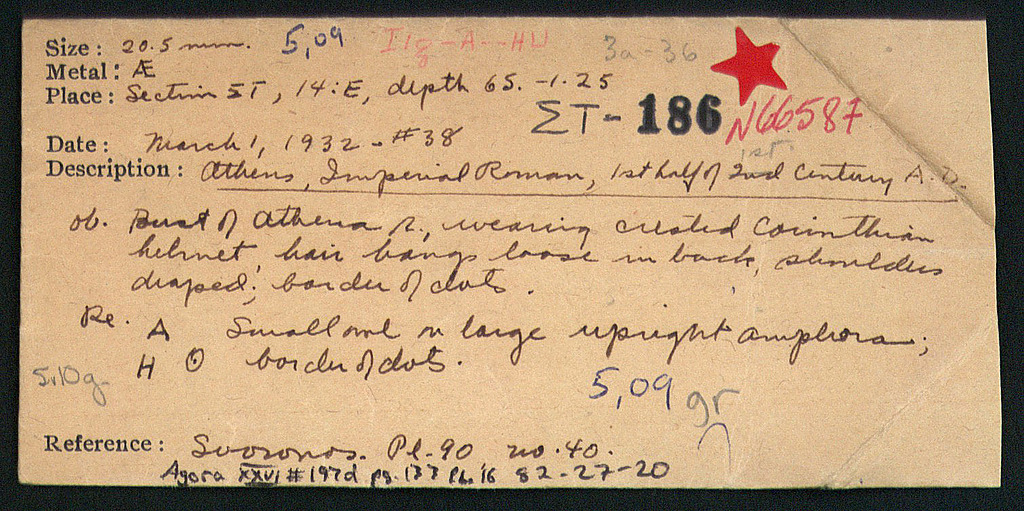 Size: 20.5 mm. 5,09 3a-36
Metal: Æ
Place: Section ΣT, 14:E, depth 65. -1.25
ΣT- 186 N66587
Date: March 1, 1932 - #38
1st
Description: Athens, Imperial Roman, 1st half of 2nd Century A.D.
ob. Bust of Athena r., wearing crested Corinthian
helmet, hair hangs loose in back, shoulders
draped; border of dots.
Re. A Small owl on large upright amphora;
H Θ border of dots.
5.10g
5,09 gr
Reference: Svoronos. Pl. 90 no. 40.
Agora XXVI #197d pg. 137 PL. 16 82-27-20